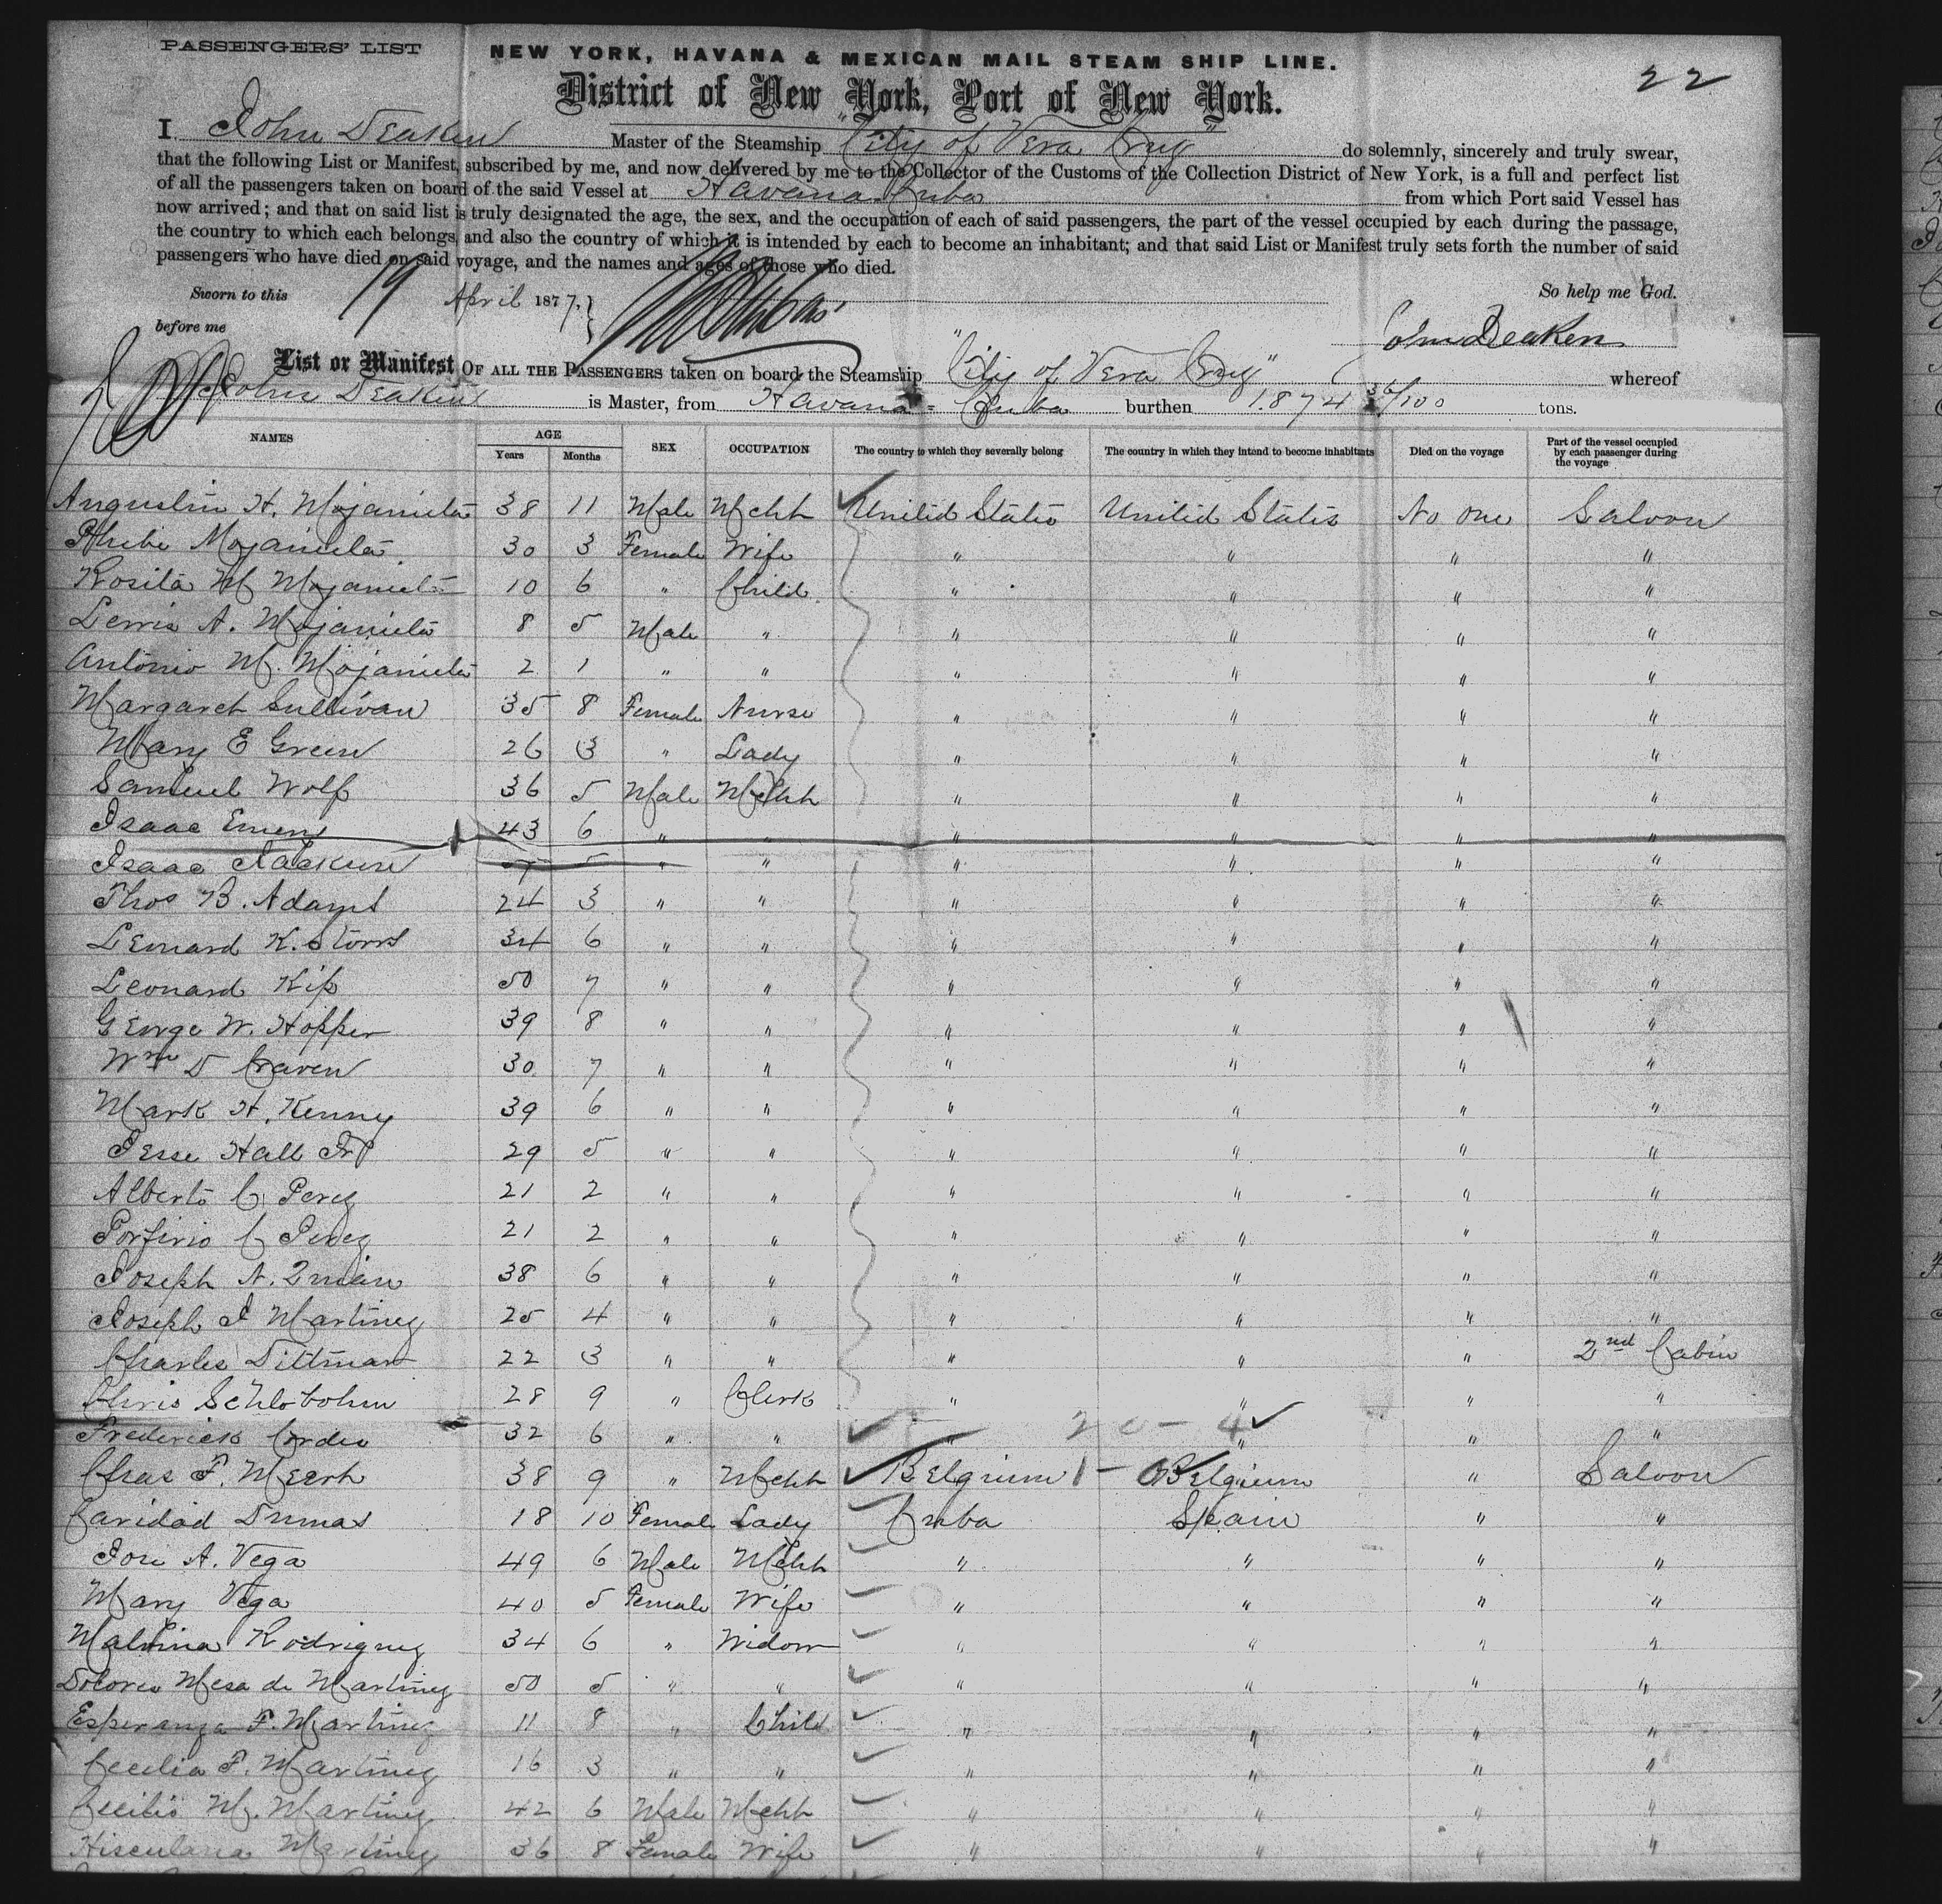 PASSENGERS' LIST
NEW YORK, HAVANA & MEXICAN MAIL STEAM SHIP LINE.
22
District of New York, Port of New York.
I John Deaken Master of the Steamship "City of Vera Cruz" do solemnly, sincerely and truly swear,
that the following List or Manifest, subscribed by me, and now delivered by me to the Collector of the Customs of the Collection District of New York, is a full and perfect list
of all the passengers taken on board of the said Vessel at Havana Cuba from which Port said Vessel has
now arrived; and that on said list is truly designated the age, the sex, and the occupation of each of said passengers, the part of the vessel occupied by each during the passage,
the country to which each belongs, and also the country of which it is intended by each to become an inhabitant; and that said List or Manifest truly sets forth the number of said
passengers who have died on said voyage, and the names and ages of those who died.
Sworn to this 19 April 1877. So help me God.
before me John Deaken
List or Manifest OF ALL THE PASSENGERS taken on board the Steamship "City of Vera Cruz" whereof
John Deaken is Master, from Havana = Cuba burthen 1.874 36/100 tons.
NAMES AGE Years Months SEX OCCUPATION The country to which they severally belong The country in which they intend to become inhabitants Died on the voyage Part of the vessel occupied by each passenger during the voyage
H. 38 11 Male Mcht United States United States No one Saloon
30 3 Female Wife " " " "
Rosita M 10 6 " Child " " " "
A. 8 5 Male " " " " "
Antonio M. 2 1 " " " " " "
Margaret Sullivan 35 8 Female Nurse " " " "
Mary E Green 26 3 " Lady " " " "
Samuel Wolf 36 5 Male Mcht " " " "
Isaac 43 6 " " " " " "
Isaac 5 " " " " " "
Thos B. Adams 24 3 " " " " " "
Leonard K. Storrs 34 6 " " " " " "
Leonard Kip 50 7 " " " " " "
George W. Hopper 39 8 " " " " " "
Wm D Craven 30 7 " " " " " "
Mark H. Kenny 39 6 " " " " " "
Jesse Hall Jr 29 5 " " " " " "
Alberto C Perez 21 2 " " " " " "
Porfirio C Perez 21 2 " " " " " "
Joseph N. 38 6 " " " " " "
Joseph J Martinez 25 4 " " " " " "
Charles Dittman 22 3 " " " " " 2nd Cabin
Chris Schlobohm 28 9 " Clerk " " " "
Frederick Cordes 32 6 " " " 20 - 4 " " "
Chas F. 38 9 " Mcht Belgium 1 - 0 Belgium " Saloon
Caridad Dumas 18 10 Female Lady Cuba Spain " "
Jose A. Vega 49 6 Male Mcht " " " "
Mary Vega 40 5 Female Wife " " " "
Malvina Rodriguez 34 6 " Widow " " " "
Dolores Mesa de Martinez 50 5 " " " " " "
Esperanza F. Martinez 11 8 " Child " " " "
Cecilia F. Martinez 16 3 " " " " " "
Cecilio M. Martinez 42 6 Male Mcht " " " "
Martinez 36 8 Female Wife " " " "